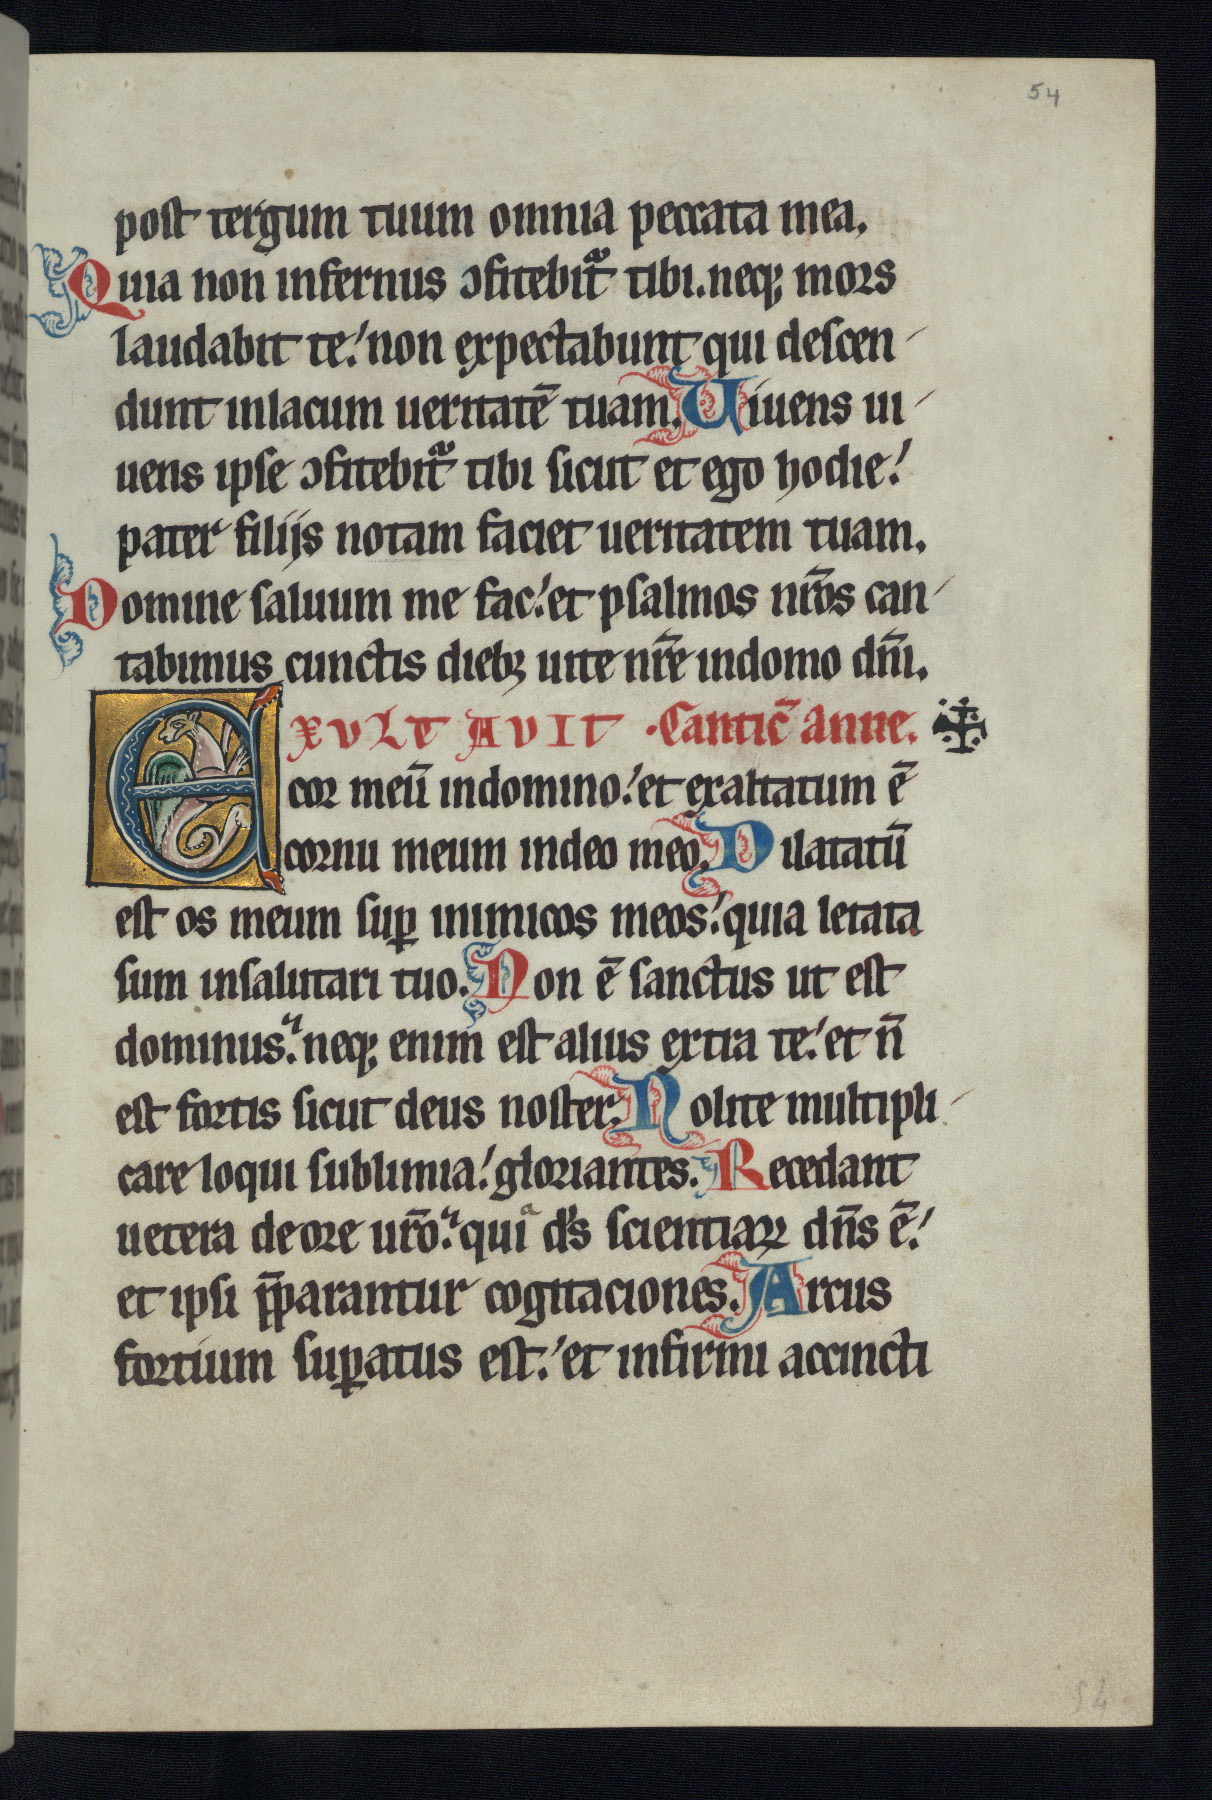 54
post tergum tuum omnia peccata mea.
Quia non infernus ↄfitebit᷑ tibi. neq; mors
laudabit te. non expectabunt qui descen-
dunt inlacum ueritatē tuam. Uiuens ui-
uens ipse ↄfitebit᷑ tibi sicut et ego hodie.
pater filijs notam faciet ueritatem tuam.
Domine saluum me fac. et psalmos nr̄os can-
tabimus cunctis dieb; uite nr̄e indomo dn̄i.
EXULTAVIT. Cantic̄ anne.
cor meū indomino. et exaltatum ē
cornu meum indeo meo. Dilatatū
est os meum suꝑ inimicos meos. quia letata
sum insalutari tuo. Non ē sanctus ut est
dominus. neq; enim est alius extra te. et n̄
est fortis sicut deus noster. Nolite multipli-
care loqui sublimia. gloriantes. Recedant
uetera deore ur̄o. quia d̄s scientiaꝝ dn̄s ē.
et ipsi p̄parantur cogitaciones. Arcus
fortium suꝑatus est. et infirmi accincti
54